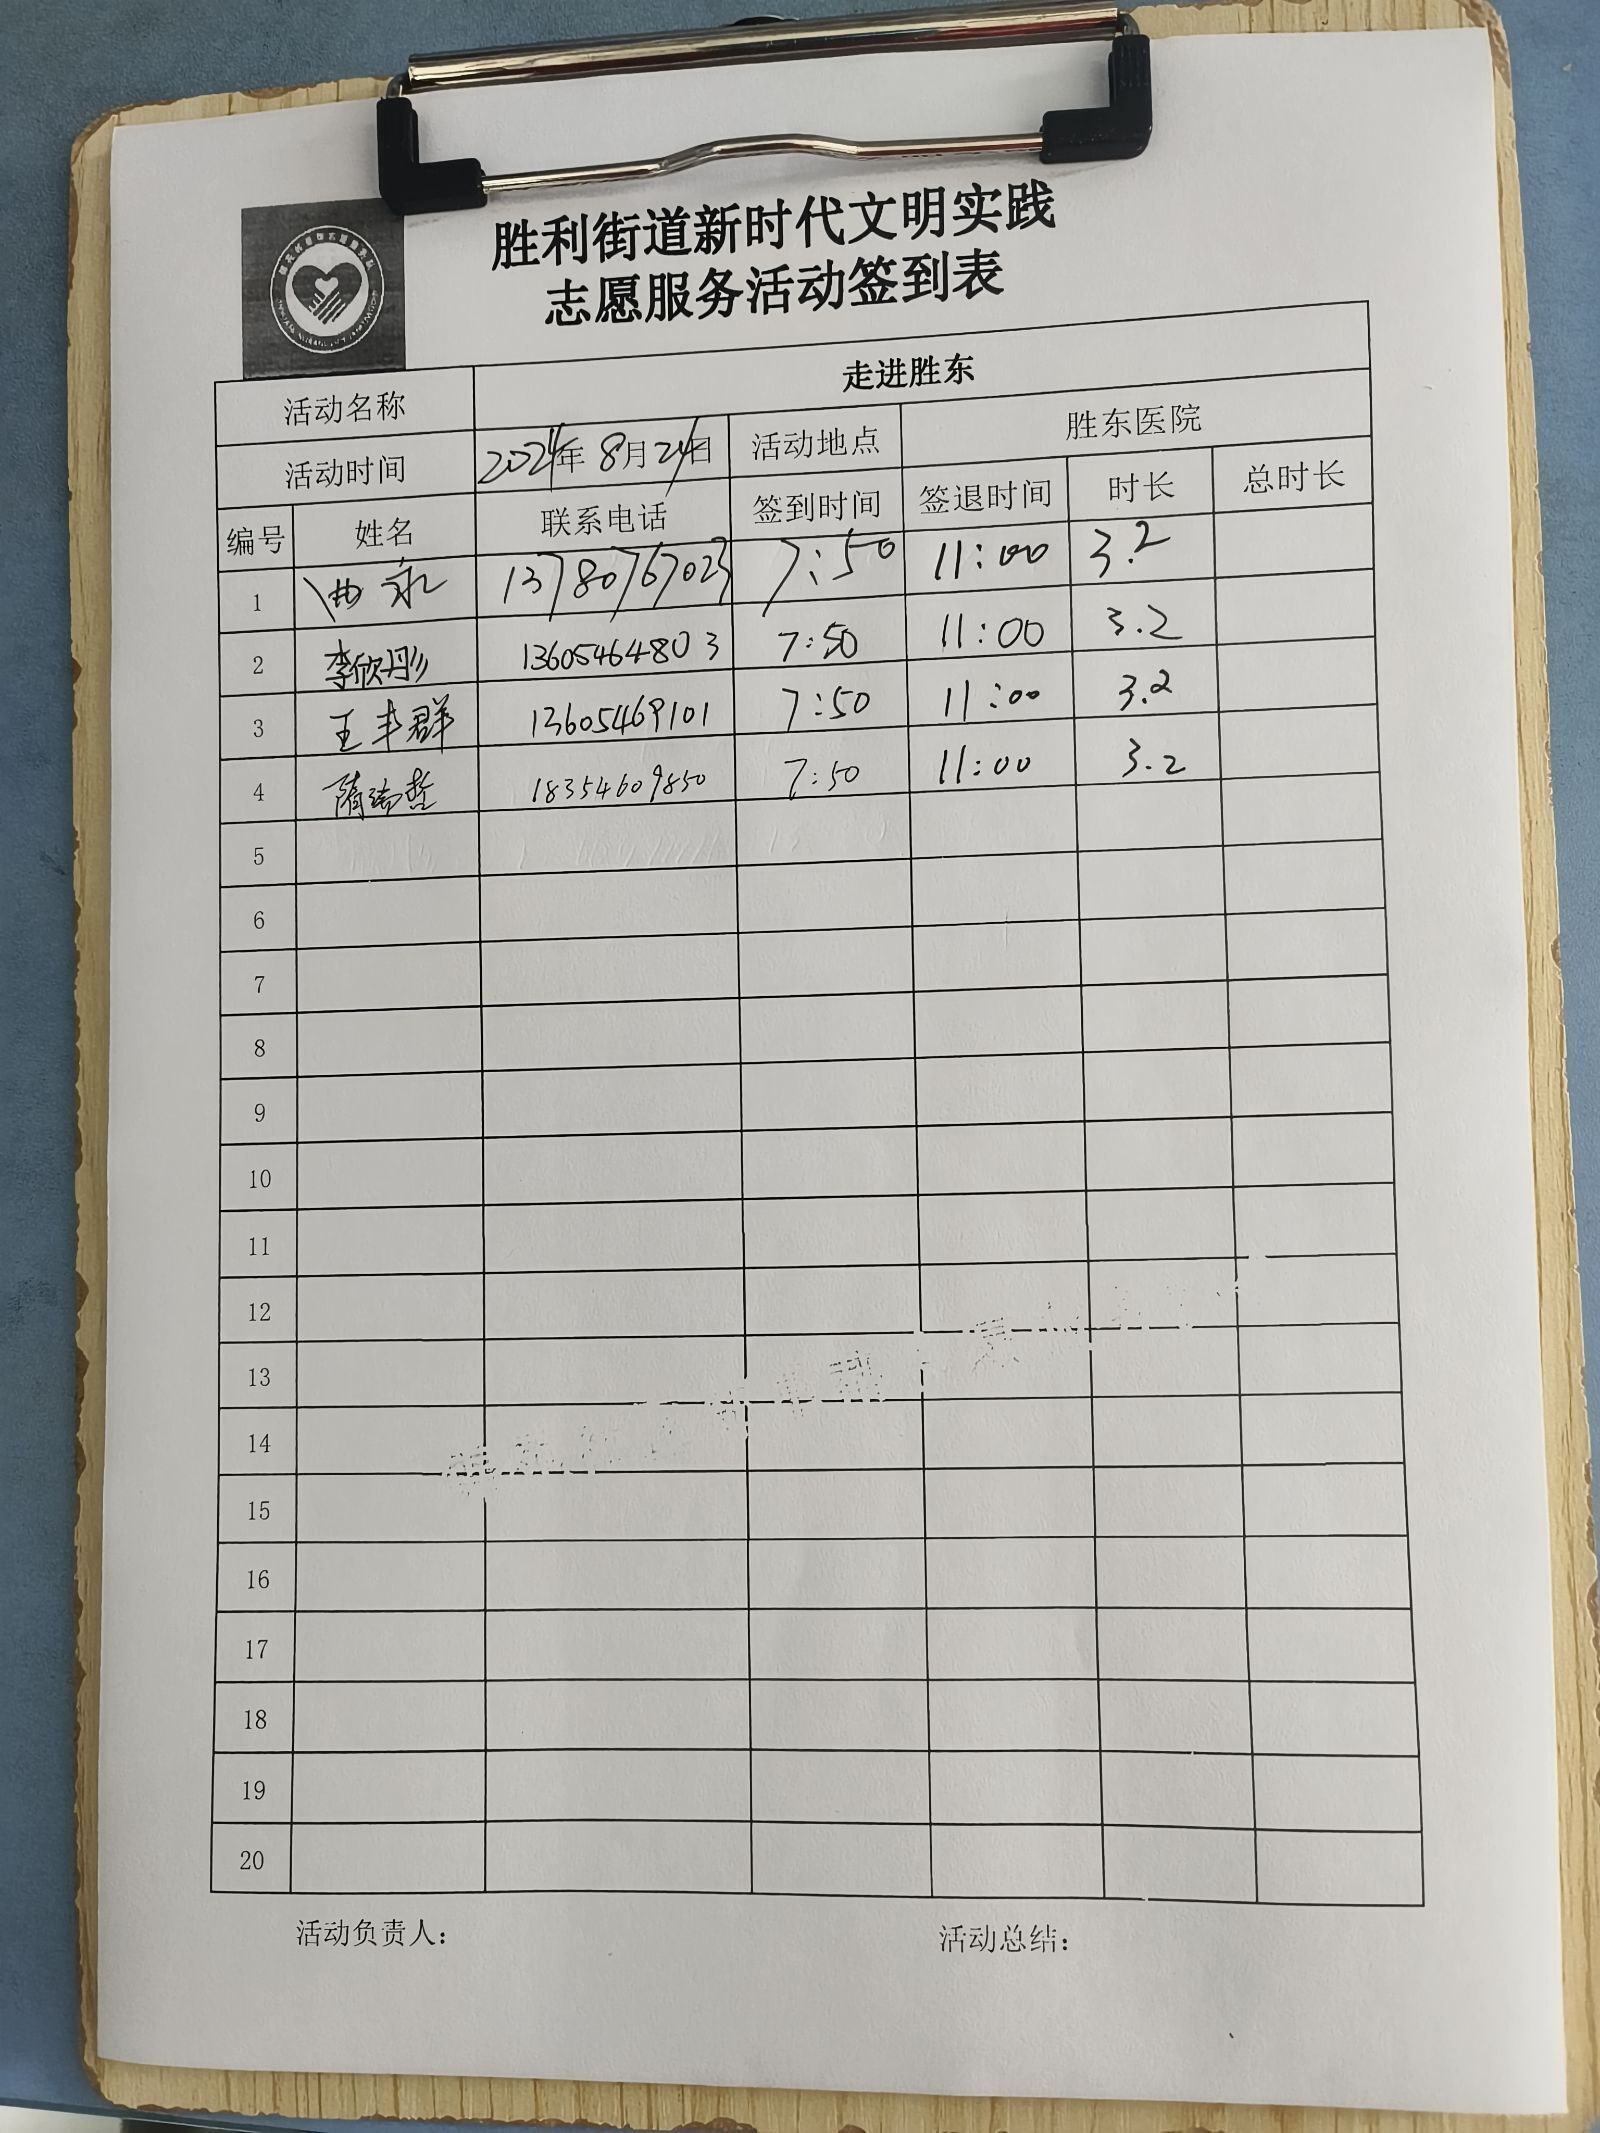 胜利街道新时代文明实践
志愿服务活动签到表
活动名称 走进胜东
活动时间 2024年8月24日 活动地点 胜东医院
编号 姓名 联系电话 签到时间 签退时间 时长 总时长
1 曲永 13780767023 7:50 11:00 3.2
2 李欣彤 13605464803 7:50 11:00 3.2
3 王丰群 13605469101 7:50 11:00 3.2
4 隋瑞哲 18354609850 7:50 11:00 3.2
5
6
7
8
9
10
11
12
13
14
15
16
17
18
19
20
活动负责人： 活动总结：